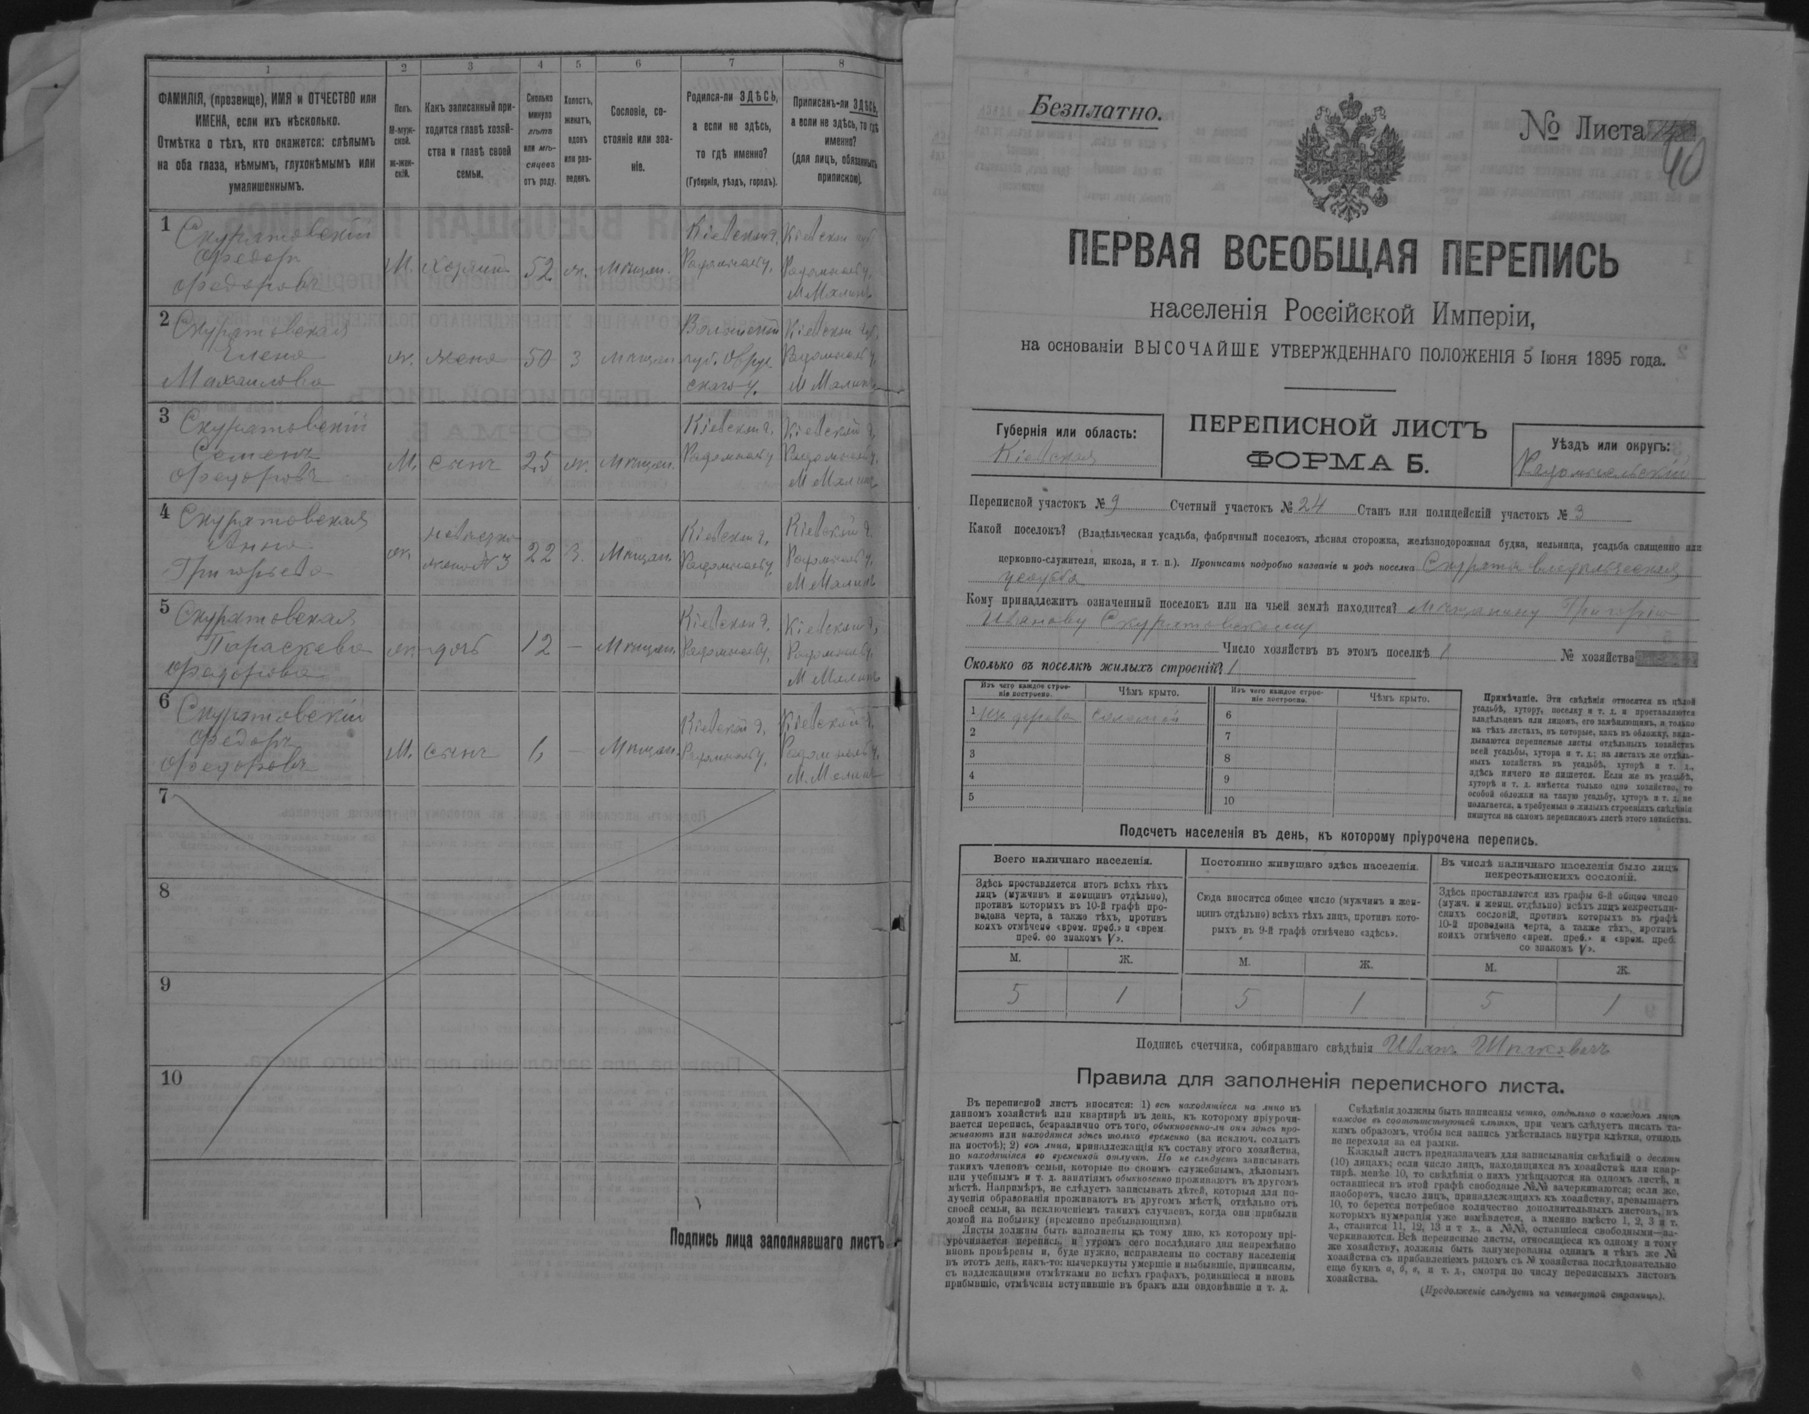 1
2
3
4
5
6
7
8
ФАМИЛІЯ, (прозвище), ИМЯ и ОТЧЕСТВО или
ИМЕНА, если ихъ нѣсколько.
Отмѣтка о тѣхъ, кто окажется: слѣпымъ
на оба глаза, нѣмымъ, глухонѣмымъ или
умалишеннымъ.
Полъ.
М-муж-
ской.
ж-жен-
скій.
Какъ записанный при-
ходится главѣ хозяй-
ства и главѣ своей
семьи.
Сколько
минуло
лѣтъ
или мѣ-
сяцевъ
отъ роду.
Холостъ,
женатъ,
вдовъ
или раз-
веденъ.
Сословіе, со-
стояніе или зва-
ніе.
Родился-ли ЗДѢСЬ,
а если не здѣсь,
то гдѣ именно?
(Губернія, уѣздъ, городъ).
Приписанъ-ли ЗДѢСЬ,
а если не здѣсь, то гдѣ
именно?
(для лицъ, обязанныхъ
припискою).
1
Скуратовскій
Федоръ
Федоровъ
М.
хозяинъ
52
ж.
Мѣщан.
Кіевской г.
Кіевской губ.
М Малинъ
2
Скуратовская
Елена
Михаилова
ж.
жена
50
З
Мѣщан.
Волынской
губ. Овруч
скаго у.
Кіевской губ.
М Малинъ
3
Скуратовскій
Семенъ
Федоровъ
М.
сынъ
25
ж.
Мѣщан.
Кіевской г.
Кіевской г.
М Малинъ
4
Скуратовская
Анна
Григорьева
ж.
невѣстка
жена № 3
22
З.
Мѣщан.
Кіевской г.
Кіевской г.
М Малинъ
5
Скуратовская
Параскева
Федорова
ж.
дочь
12
—
Мѣщан.
Кіевской г.
Кіевской г.
М Малинъ
6
Скуратовскій
Федоръ
Федоровъ
М.
сынъ
6
—
Мѣщан.
Кіевской г.
Кіевской г.
М. Малинъ
7
8
9
10
Подпись лица заполнявшаго листъ
Безплатно.
№ Листа
40
ПЕРВАЯ ВСЕОБЩАЯ ПЕРЕПИСЬ
населенія Россійской Имперіи,
на основаніи ВЫСОЧАЙШЕ УТВЕРЖДЕННАГО ПОЛОЖЕНІЯ 5 Іюня 1895 года.
Губернія или область:
Кіевская
ПЕРЕПИСНОЙ ЛИСТЪ
ФОРМА Б.
Уѣздъ или округъ:
Радомысльскій
Переписной участокъ № 9 Счетный участокъ № 24 Станъ или полицейскій участокъ № 3
Какой поселокъ? (Владѣльческая усадьба, фабричный поселокъ, лѣсная сторожка, желѣзнодорожная будка, мельница, усадьба священно или
церковно-служителя, школа, и т. п.). Прописать подробно названіе и родъ поселка Скурата владѣльческая
усадьба
Кому принадлежитъ означенный поселокъ или на чьей землѣ находится? Мѣщанину Григорію
Иванову Скуратовскому
Число хозяйствъ въ этомъ поселкѣ 1 № хозяйства
Сколько въ поселкѣ жилыхъ строеній? 1
Изъ чего каждое строе-
ніе построено.
Чѣмъ крыто.
Изъ чего каждое строе-
ніе построено.
Чѣмъ крыто.
1 Изъ дерева соломой
2
3
4
5
6
7
8
9
10
Примѣчаніе. Эти свѣдѣнія относятся къ цѣлой
усадьбѣ, хутору, поселку и т. д. и проставляются
владѣльцемъ или лицомъ, его замѣняющимъ, и только
на тѣхъ листахъ, въ которые, какъ въ обложку, вкла-
дываются переписные листы отдѣльныхъ хозяйствъ
всей усадьбы, хутора и т. д.; на листахъ же отдѣль-
ныхъ хозяйствъ въ усадьбѣ, хуторѣ и т. д.,
здѣсь ничего не пишется. Если же въ усадьбѣ,
хуторѣ и т. д. имѣется только одно хозяйство, то
особой обложки на такую усадьбу, хуторъ и т. д. не
полагается, а требуемыя о жилыхъ строеніяхъ свѣдѣнія
пишутся на самомъ переписномъ листѣ этого хозяйства.
Подсчетъ населенія въ день, къ которому пріурочена перепись.
Всего наличнаго населенія.
Здѣсь проставляется итогъ всѣхъ тѣхъ
лицъ (мужчинъ и женщинъ отдѣльно),
противъ которыхъ въ 10-й графѣ про-
ведена черта, а также тѣхъ, противъ
коихъ отмѣчено «врем. преб.» и «врем
преб. со знакомъ V».
Постоянно живущаго здѣсь населенія.
Сюда вносится общее число (мужчинъ и жен-
щинъ отдѣльно) всѣхъ тѣхъ лицъ, противъ кото-
рыхъ въ 9-й графѣ отмѣчено «здѣсь».
Въ числѣ наличнаго населенія было лицъ
некрестьянскихъ сословій.
Здѣсь проставляется изъ графы 6-й общее число
(мужч. и женщ. отдѣльно) всѣхъ лицъ некрестьян-
скихъ сословій, противъ которыхъ въ графѣ
10-й проведена черта, а также тѣхъ, противъ
коихъ отмѣчено «врем. преб.» и «врем. преб.
со знакомъ V».
М. Ж. М. Ж. М. Ж.
5 1 5 1 5 1
Подпись счетчика, собиравшаго свѣдѣнія Иванъ
Правила для заполненія переписного листа.
Въ переписной листъ вносятся: 1) всѣ находящіеся на лицо въ
данномъ хозяйствѣ или квартирѣ въ день, къ которому пріурочи-
вается перепись, безразлично отъ того, обыкновенно-ли они здѣсь про-
живаютъ или находятся здѣсь только временно (за исключ. солдатъ
на постоѣ); 2) всѣ лица, принадлежащія къ составу этого хозяйства,
но находящіяся во временной отлучкѣ. Но не слѣдуетъ записывать
такихъ членовъ семьи, которые по своимъ служебнымъ, дѣловымъ
или учебнымъ и т. д. занятіямъ обыкновенно проживаютъ въ другомъ
мѣстѣ. Напримѣръ, не слѣдуетъ записывать дѣтей, которыя для по-
лученія образованія проживаютъ въ другомъ мѣстѣ, отдѣльно отъ
своей семьи, за исключеніемъ такихъ случаевъ, когда они прибыли
домой на побывку (временно пребывающими).
Листы должны быть заполнены къ тому дню, къ которому прі-
урочивается перепись, и утромъ сего послѣдняго дня непремѣнно
вновь провѣрены и, буде нужно, исправлены по составу населенія
въ этотъ день, какъ-то: вычеркнуты умершіе и выбывшіе, приписаны,
съ надлежащими отмѣтками во всѣхъ графахъ, родившіеся и вновь
прибывшіе, отмѣчены вступившіе въ бракъ или овдовѣвшіе и т. д.
Свѣдѣнія должны быть написаны четко, отдѣльно о каждомъ лицѣ
каждое въ соотвѣтствующей клѣткѣ, при чемъ слѣдуетъ писать та-
кимъ образомъ, чтобы вся запись умѣстилась внутри клѣтки, отнюдь
не переходя за ея рамки.
Каждый листъ предназначенъ для записыванія свѣдѣній о десяти
(10) лицахъ; если число лицъ, находящихся въ хозяйствѣ или квар-
тирѣ, менѣе 10, то свѣдѣнія о нихъ умѣщаются на одномъ листѣ, и
оставшіеся въ этой графѣ свободные №№ вычеркиваются; если же,
наоборотъ, число лицъ, принадлежащихъ къ хозяйству, превышаетъ
10, то берется потребное количество дополнительныхъ листовъ, въ
которыхъ нумерація уже измѣняется, а именно вмѣсто 1, 2, 3 и т.
д., ставится 11, 12, 13 и т д., а №№, оставшіеся свободными—за-
черкиваются. Всѣ переписные листы, относящіеся къ одному и тому
же хозяйству, должны быть занумерованы однимъ и тѣмъ же №
хозяйства съ прибавленіемъ рядомъ съ № хозяйства послѣдовательно
еще буквъ а, б, в, и т. д., смотря по числу переписныхъ листовъ
хозяйства.
(Продолженіе слѣдуетъ на четвертой страницѣ).